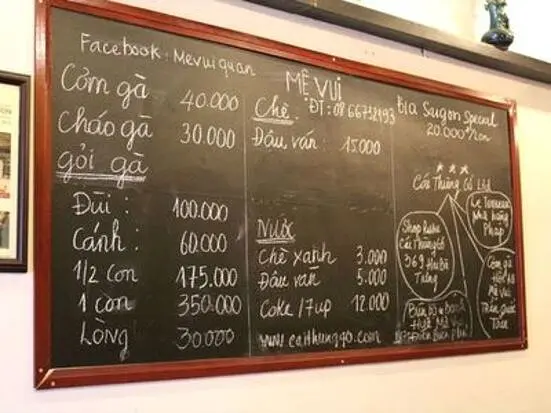 Facebook: Mevuiquan
MÊ VUI
Cơm gà 40.000
Cháo gà 30.000
gỏi gà
Đùi: 100.000
Cánh: 60.000
1/2 con 175.000
1 con 350.000
LÒNG 30.000
Chè: ĐT: 08 66752193
Đậu ván: 15.000
Nước
Chè xanh 3.000
Đậu ván 5.000
Coke/7up 12.000
www.caithunggo.com
Bia Saigon Special
20.000đ/Lon
Cái Thùng Gỗ
Nhà hàng
Pháp
Shop Rượu
Cái Thùng Gỗ
369 Hai Bà
Trưng
Cơm gà
Hội An
Mê Vui
Trần Quốc
Toản
Bún bò
Huế